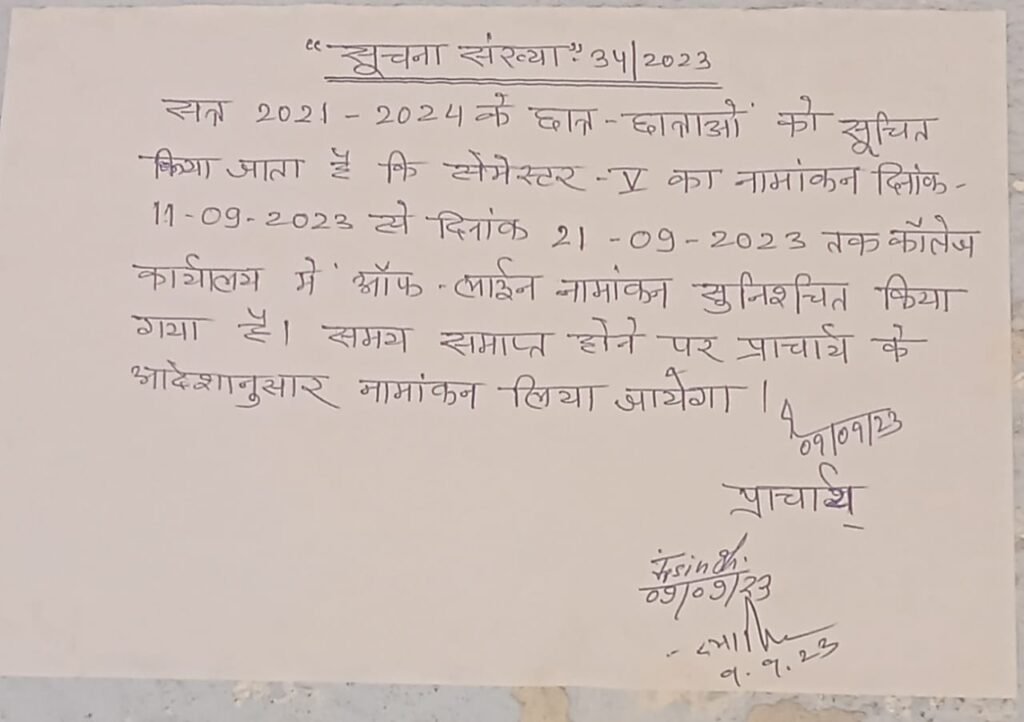 “सूचना संख्या”: 34/2023
सत्र 2021-2024 के छात्र-छात्राओं को सूचित
किया जाता है कि सेमेस्टर-V का नामांकन दिनांक-
11-09-2023 से दिनांक 21-09-2023 तक कॉलेज
कार्यालय में ऑफ-लाईन नामांकन सुनिश्चित किया
गया है। समय समाप्त होने पर प्राचार्य के
आदेशानुसार नामांकन लिया जायेगा।
09/09/23
प्राचार्य
09/09/23
9.9.23